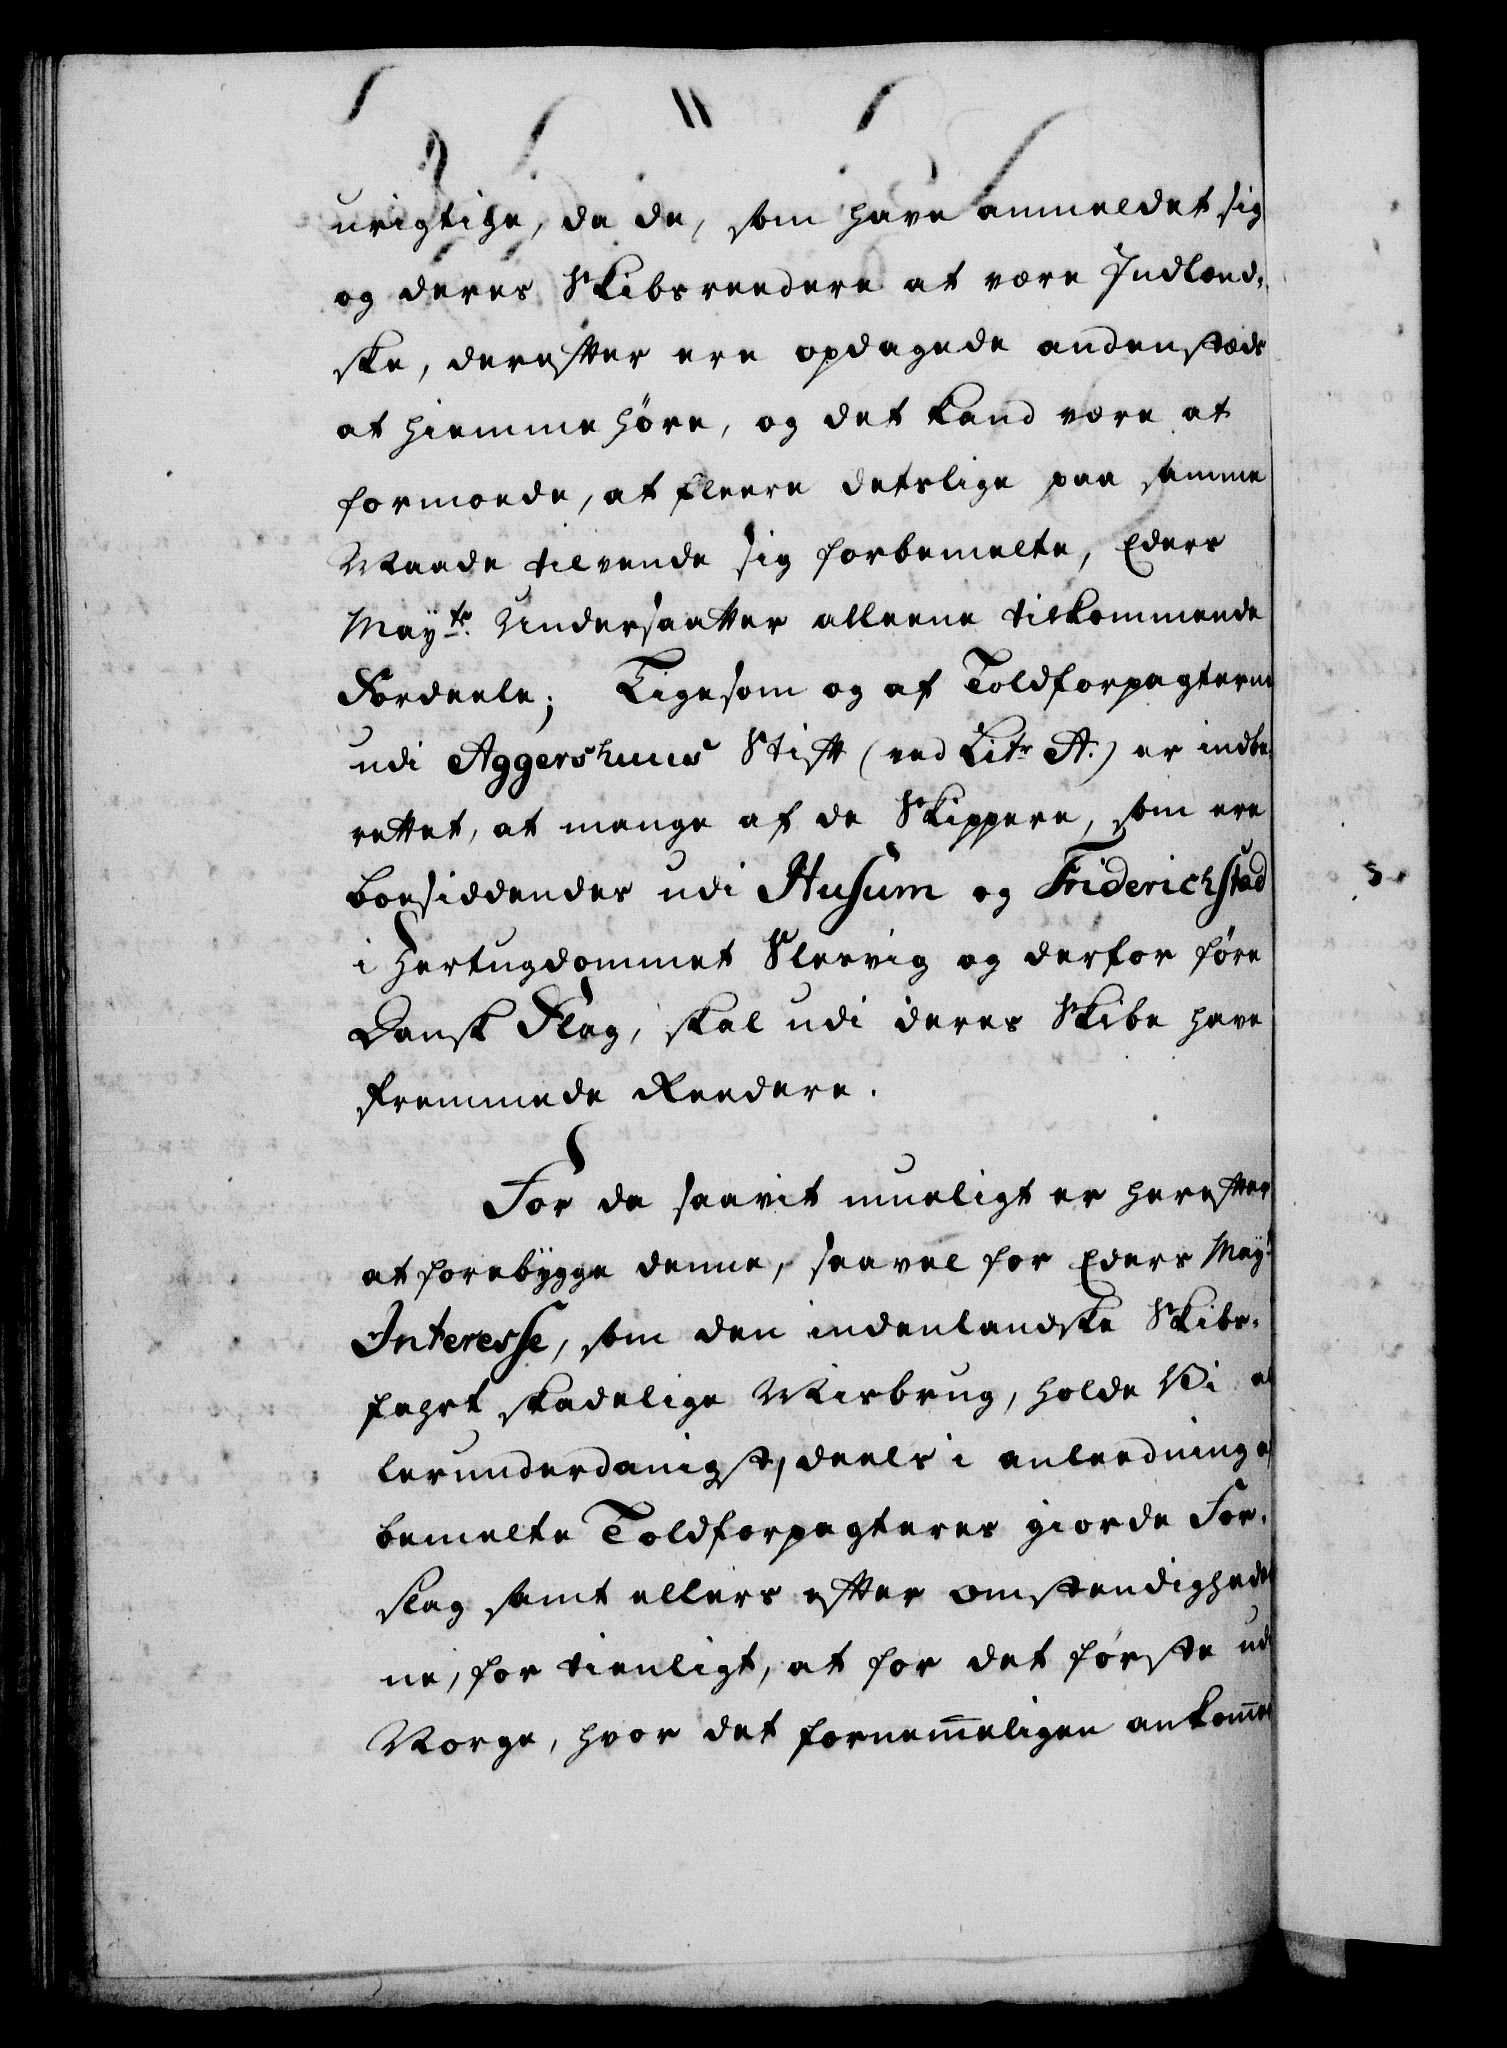 urigtige, da de, som have anmeldet sig
og deres Skibsreedere at være Indlænd-
ske, derefter ere opdagede andenstæds
at hiemme høre, og det kand være at
formode, at fleere deslige paa samme
Maade tilvende sig forbemelte, Eders
Mayts. Undersaatter alleene tilkommende
Fordeele; Ligesom og af Toldforpagterne
udi Aggershuus Stift (ved Litr A.) er indbe
rettet, at mange af de Skippere, som ere
boesiddendes udi Husum og Friderichstad
i Hertugdommet Slesvig og derfor føre
Dansk Flag, skal udi deres Skibe have
fremmede Reedere.
For da saavit mueligt er herefter
at forebygge denne, saavel for Eders Mayts
Interesse, som den indenlandske Skibs-
fahrt skadelige Misbrug, holde Vi al
lerunderdanigst, deels i anleedning af
bemelte Toldforpagteres giorde For-
slag samt ellers efter omstendigheder
ne, for tienligt, at for det første udi
Norge, hvor det fornem̅eligen ankom̅er